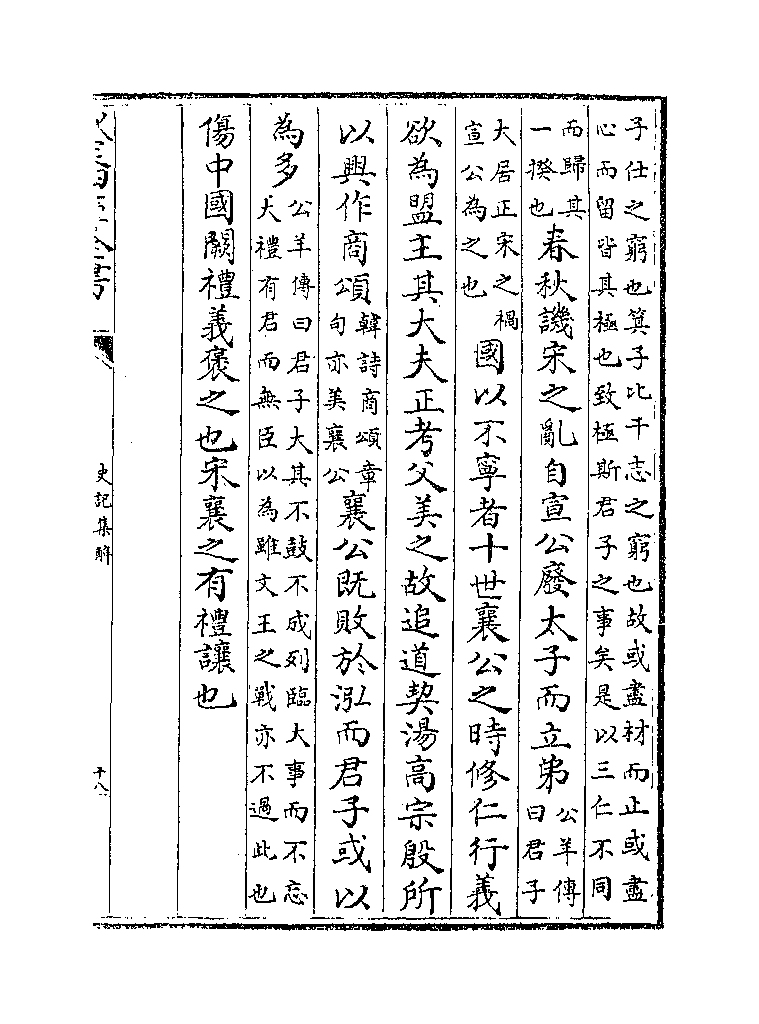 子仕之窮也箕子比干志之窮也故或盡材而止或盡
心而留皆其極也致極斯君子之事矣是以三仁不同
而歸其
一揆也
春秋譏宋之亂自宣公廢太子而立弟
公羊傳
曰君子
大居正宋之禍
宣公為之也
國以不寧者十世襄公之時修仁行義
欲為盟主其大夫正考父美之故追道契湯高宗殷所
以興作商頌
韓詩商頌章
句亦美襄公
襄公既敗於泓而君子或以
為多
公羊傳曰君子大其不鼓不成列臨大事而不忘
大禮有君而無臣以為雖文王之戰亦不過此也
傷中國闕禮義褒之也宋襄之有禮讓也
史記集解
十八